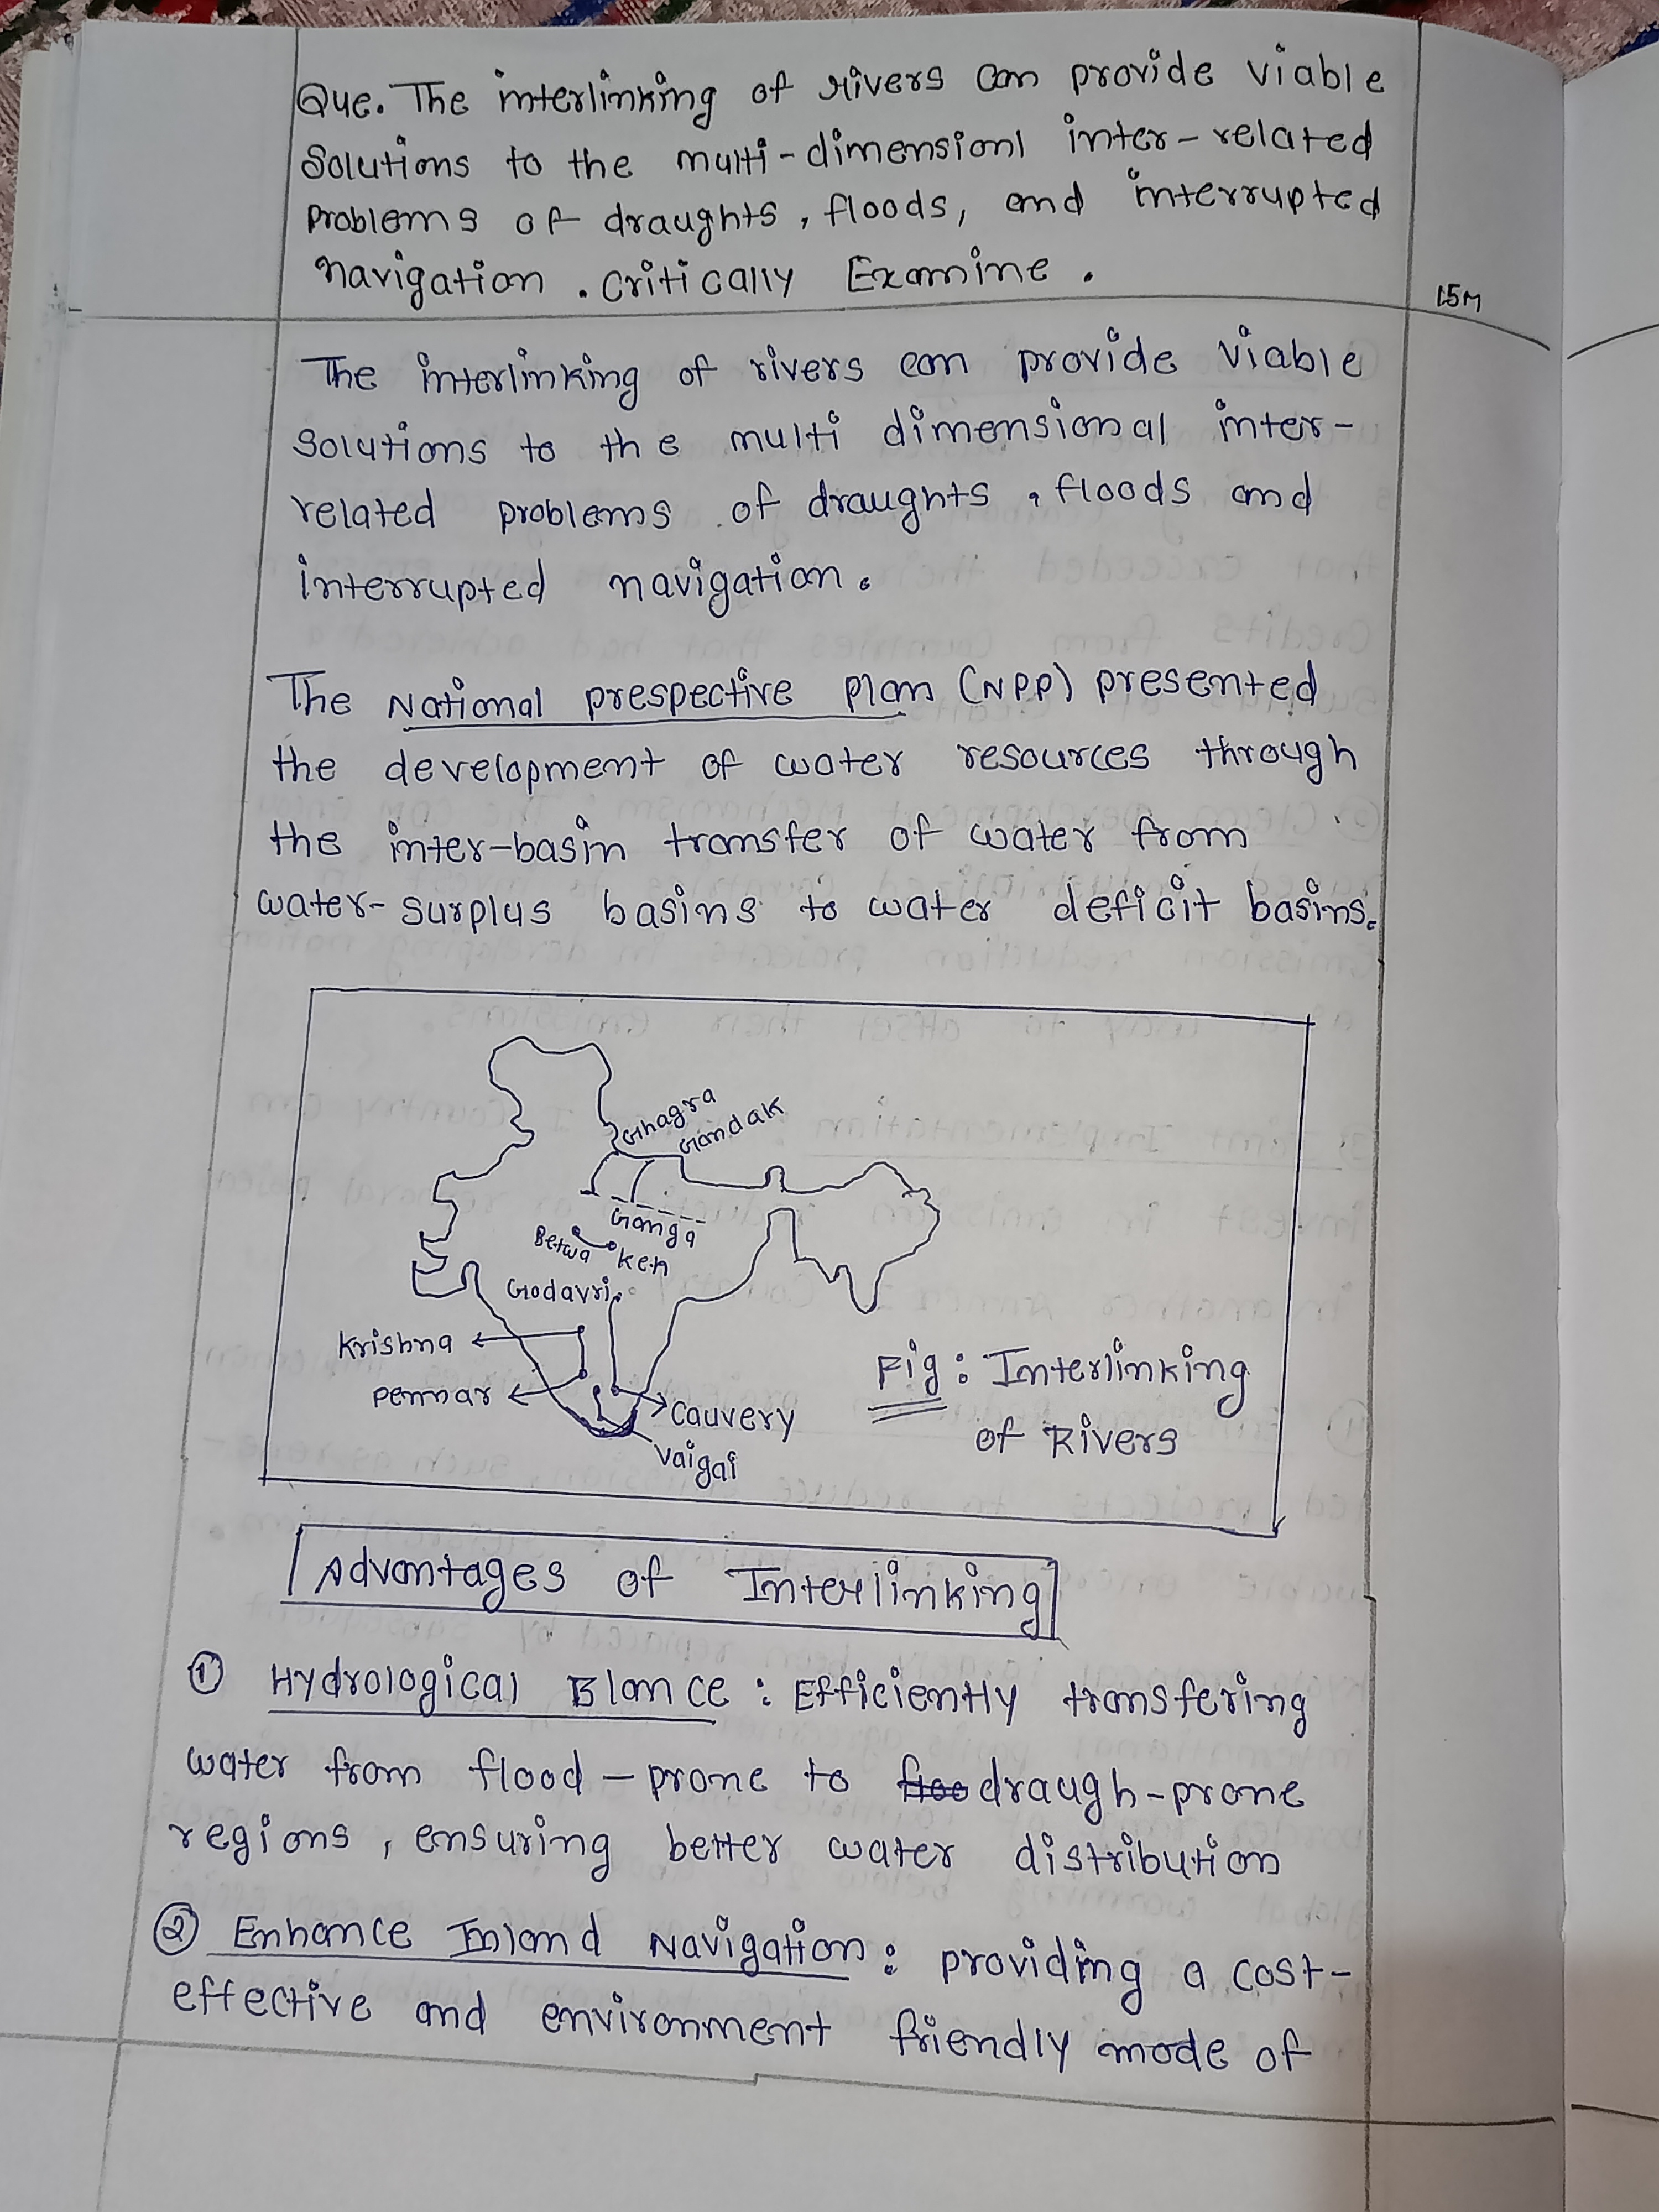 Que. The interlinking of rivers can provide viable
Solutions to the multi-dimensionl inter-related
Problems of draughts, floods, and interrupted
navigation. Critically Examine.
15M
The interlinking of rivers can provide viable
solutions to the multi dimensional inter-
related problems of draughts, floods and
interrupted navigation.
The National prespective Plan (NPP) presented
the development of water resources through
the inter-basin transfer of water from
water-surplus basins to water deficit basins.
Ghagra
Gandak
Ganga
Betwa
Ken
Godavri
Krishna
Pennar
Cauvery
Vaigai
Fig: Interlinking
of Rivers
Advantages of Interlinking
① Hydrological Blance: Efficiently transfering
water from flood-prone to floo draugh-prone
regions, ensuring better water distribution
② Enhance Inland Navigation: providing a cost-
effective and environment friendly mode of